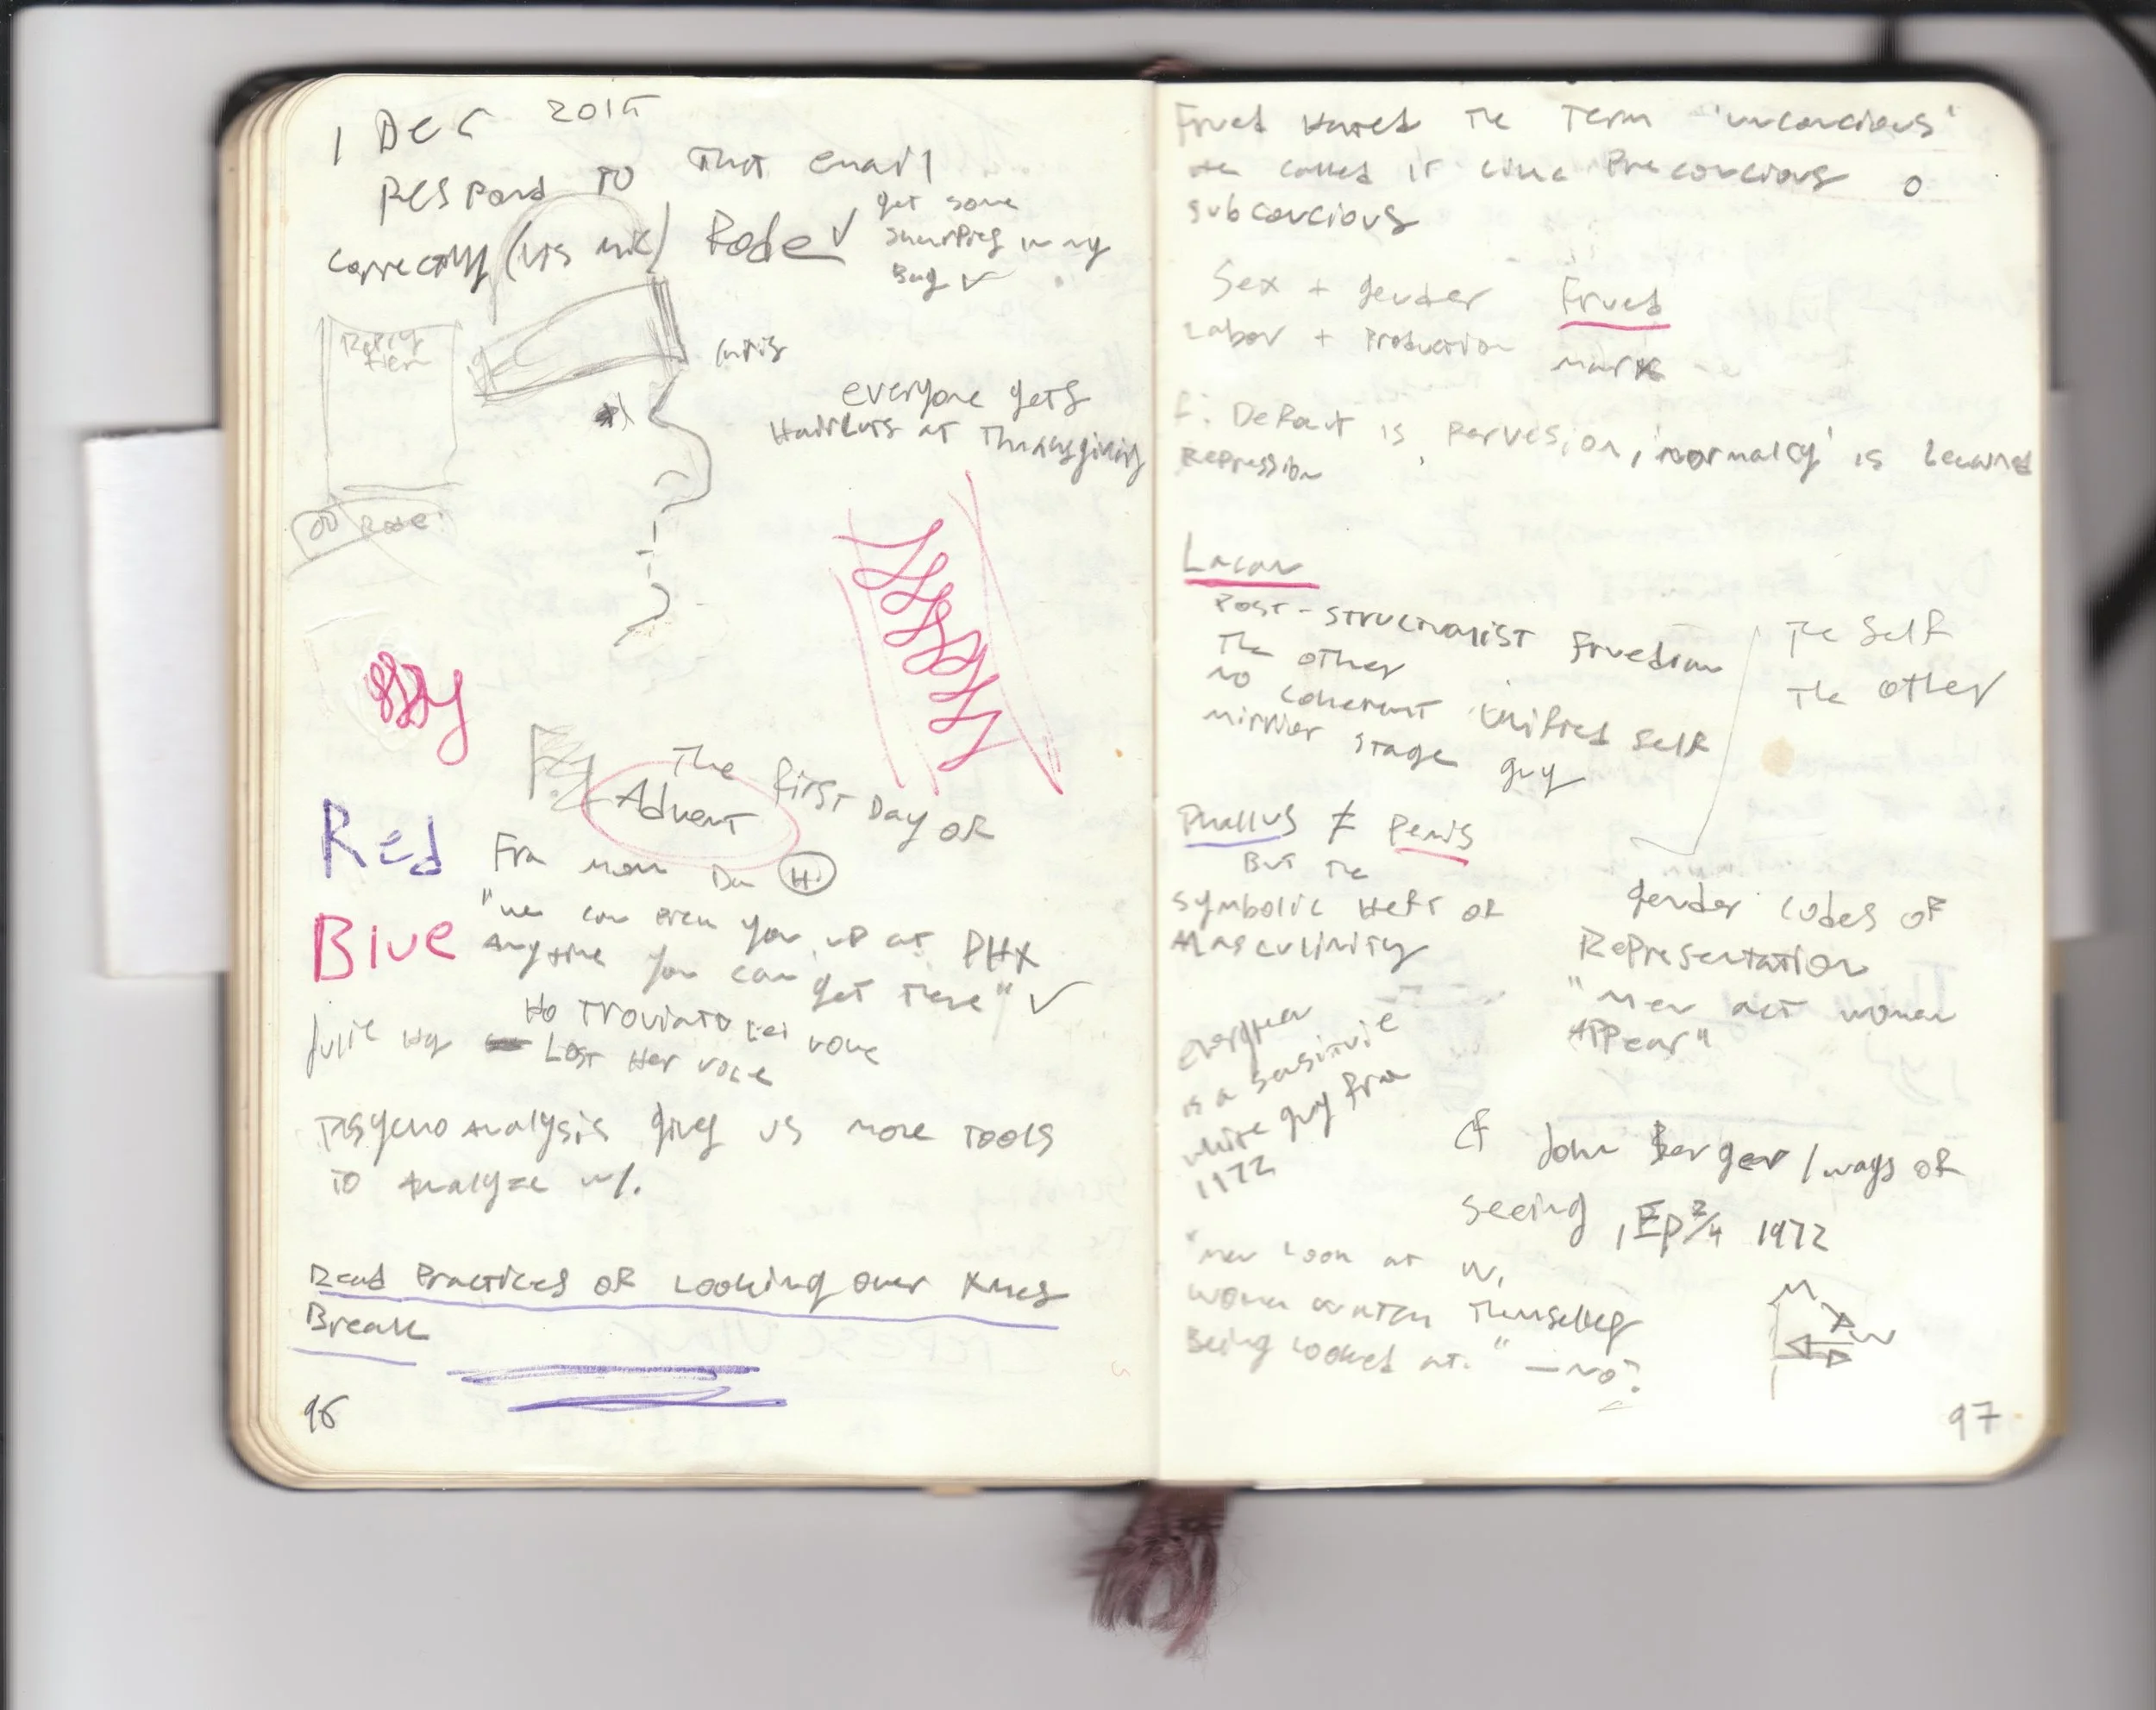 1 Dec 2015
Respond to that email
correctly (his mic) Rode ✓
get some
sharpies in my
Bag ✓
everyone gets
Haircuts at Thanksgiving
Rode
The first Day of
Advent
Red
Blue
Fra mom Da H
"we can pick you up at PHX
anytime you can get there" ✓
Ho troviato lei voce
Lost Her voice
Psycho analysis gives us more tools
to analyze w/.
Read Practices of Looking over Xmes
Break
96
Frued Hated the Term 'unconcious'
He called it like Preconcious o
subconcious
Sex + gender Frued
Labor + Production Marx
f: Defaut is Perversion, 'normalcy' is learned
Repression
Lacan
Post-structuralist Fruedian
The other
no coherent unified self
mirrior stage guy
The Self
The other
Phallus ≠ Penis
But the
symbolic Heft of
Masculinity
gender codes of
Representation
"Men act women
Appear"
is a sensitvie
white guy from
1972
cf John Berger / ways of
seeing, Ep 2/4 1972
"men look at w,
women watch themselves
Being looked at." — no?
M
W
97